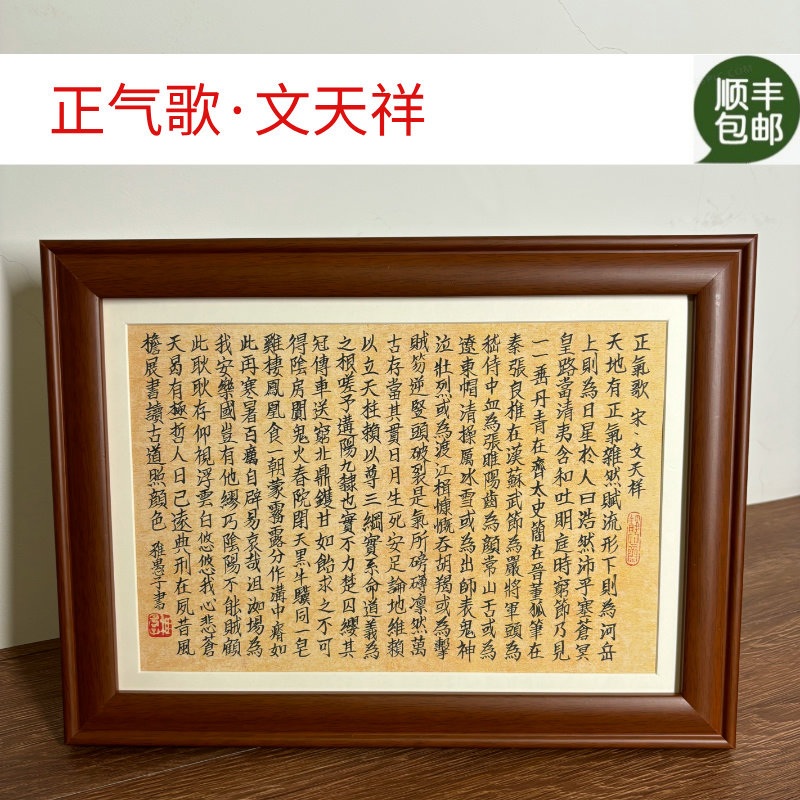 正气歌·文天祥
顺丰
包邮
正氣歌 宋·文天祥
天地有正氣雜然賦流形下則為河岳
上則為日星於人曰浩然沛乎塞蒼冥
皇路當清夷含和吐明庭時窮節乃見
一一垂丹青在齊太史簡在晉董狐筆在
秦張良椎在漢蘇武節為嚴將軍頭為
嵇侍中血為張睢陽齒為顏常山舌或為
遼東帽清操厲冰雪或為出師表鬼神
泣壯烈或為渡江楫慷慨吞胡羯或為擊
賊笏逆豎頭破裂是氣所磅礴凜然萬
古存當其貫日月生死安足論地維賴
以立天柱賴以尊三綱實系命道義為
之根嗟予遘陽九隸也實不力楚囚纓其
冠傳車送窮北鼎鑊甘如飴求之不可
得陰房闃鬼火春院閉天黑牛驥同一皂
雞棲鳳凰食一朝蒙霧露分作溝中瘠如
此再寒暑百癘自辟易哀哉沮洳場為
我安樂國豈有他繆乃陰陽不能賊顧
此耿耿存仰視浮雲白悠悠我心悲蒼
天曷有極哲人日已遠典刑在夙昔風
檐展書讀古道照顏色 雅愚子書